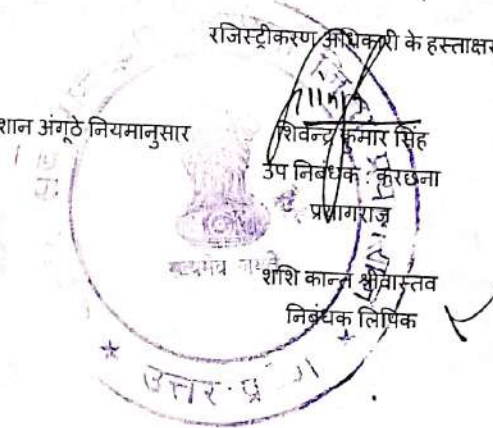 रजिस्ट्रीकरण अधिकारी के हस्ताक्षर
शान अंगूठे नियमानुसार
शिवेन्द्र कुमार सिंह
उप निबंधक : करछना
प्रयागराज
सत्यमेव जयते
शशि कान्त श्रीवास्तव
निबंधक लिपिक
उत्तर